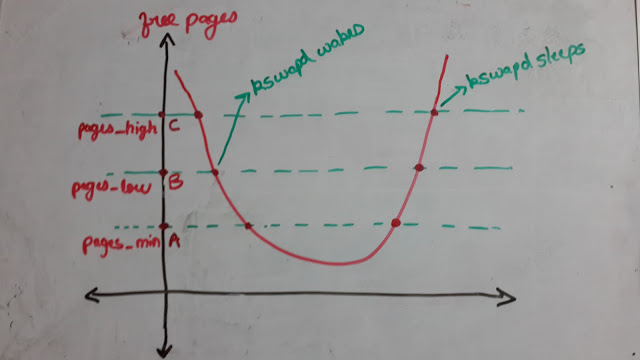 free pages
kswapd wakes
kswapd sleeps
pages_high C
pages_low B
pages_min A